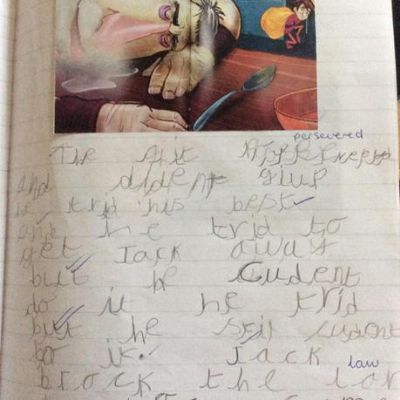 persevered
The
and dident giup
he trid his best
and he trid to
get Jack away
but he Cudent
do it he trid
but he stil cudent
do it. Jack
law
brock the lor